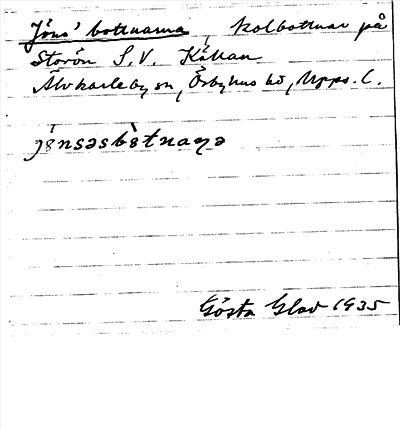 Jöns' bottnarna, kolbottnar på
Storön S.V. Kåkan
Älvkarleby sn, Örbyhus hd, Upps. l.
jønsəsbòtnaṇə
Gösta Glad 1935